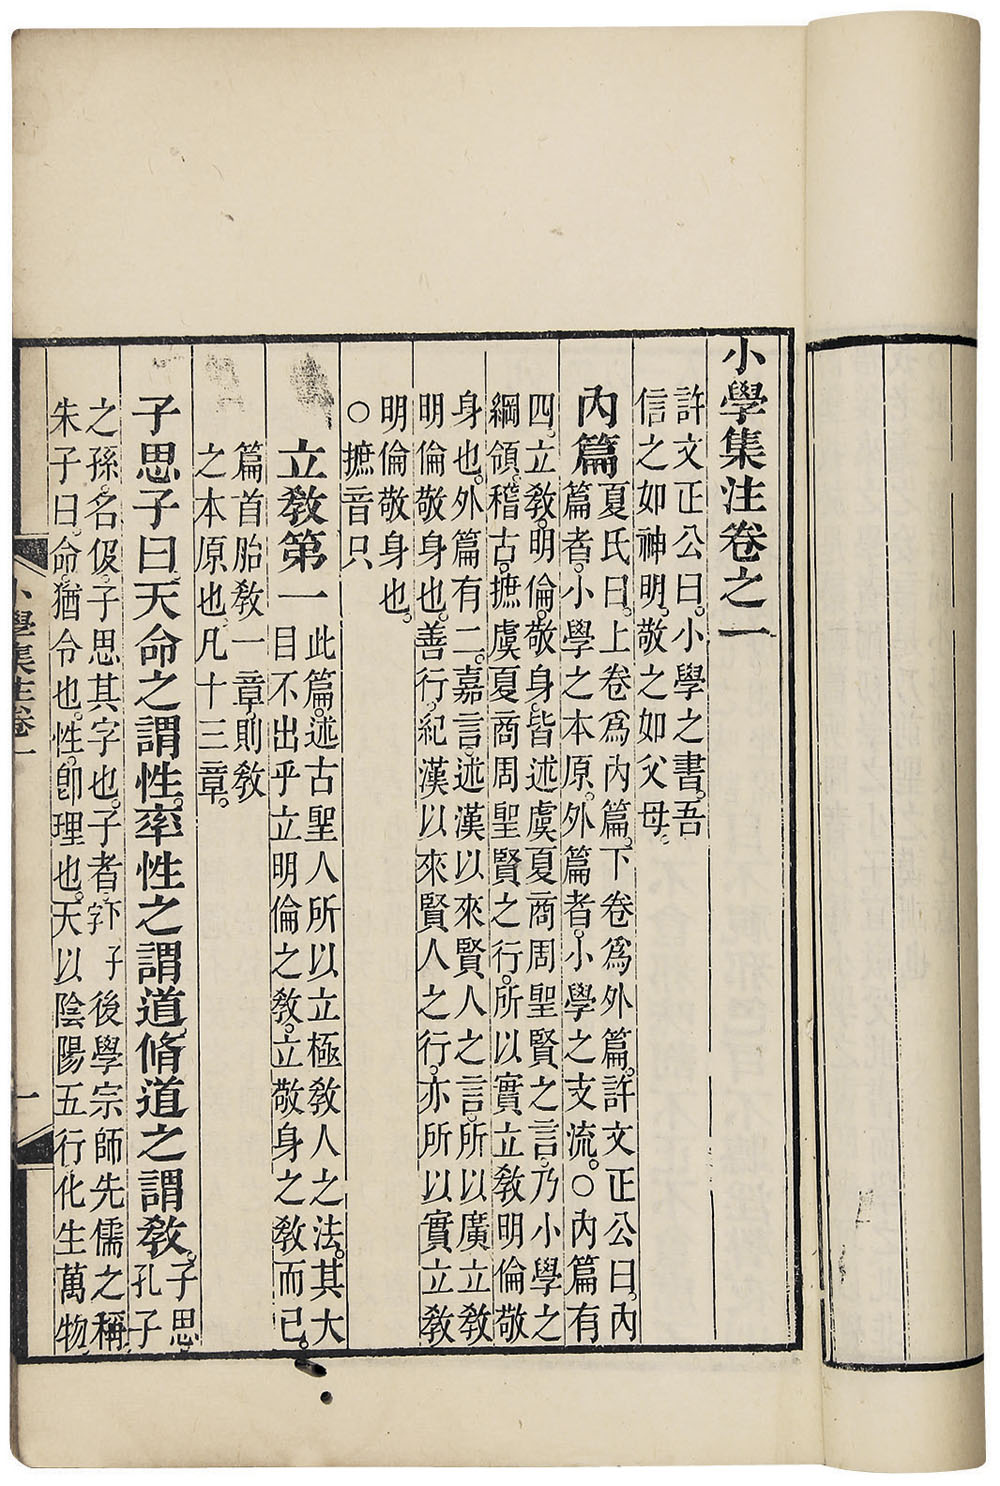 小學集注卷之一
許文正公曰。小學之書。吾
信之如神明。敬之如父母。
內篇
夏氏曰。上卷爲內篇。下卷爲外篇。許文正公曰。內
篇者。小學之本原。外篇者。小學之支流。○內篇有
四。立敎。明倫。敬身。皆述虞夏商周聖賢之言。乃小學之
綱領。稽古。摭虞夏商周聖賢之行。所以實立敎明倫敬
身也。外篇有二。嘉言。述漢以來賢人之言。所以廣立敎
明倫敬身也。善行。紀漢以來賢人之行。亦所以實立敎
明倫敬身也。
○摭音只
立敎第一
此篇。述古聖人所以立極敎人之法。其大
目不出乎立明倫之敎。立敬身之敎而已。
篇首胎敎一章。則敎
之本原也。凡十三章。
子思子曰。天命之謂性。率性之謂道。脩道之謂敎。
子思。
孔子
之孫。名伋。子思其字也。子者。字下子後學宗師先儒之稱。
朱子曰。命。猶令也。性。卽理也。天以陰陽五行化生萬物。
小學集注卷一
一